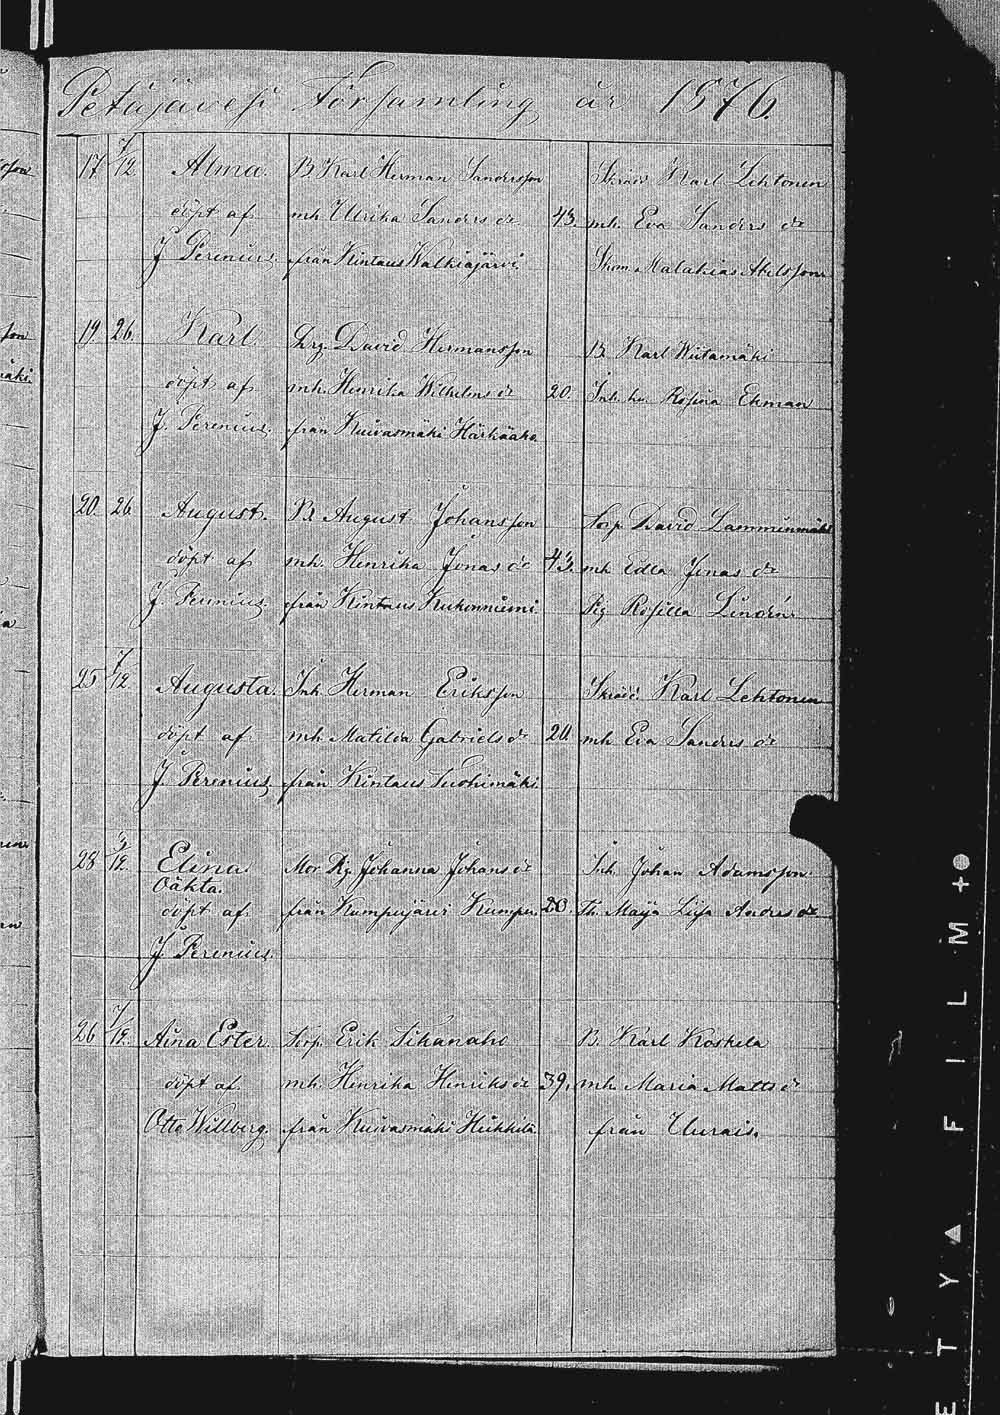 Petäjävesi Församling år 1876.
17. 7/12 Alma. B. Karl Herman Sandersson Skräd. Karl Lehtonen
döpt af mh. Ulrika Sanders dr 43. mh. Eva Sanders dr
J. Perenius. från Kintaus Walkiajärvi. Skom. Malakias Abelsson
19. 26. Karl. Drg. David Hermansson B. Karl Wiitamäki
döpt af mh. Henrika Wilhelms dr 20. Inh. hu. Rosina Ekman
J. Perenius. från Kuivasmäki Härkäaho.
20. 26. August. B. August Johansson Torp. David Lamminmäki
döpt af mh. Henrika Jonas dr 43. mh. Edla Jonas dr
J. Perenius. från Kintaus Kukonniemi. Pig. Rosilla Lindén.
25 7/12. Augusta. Inh. Herman Eriksson Skräd. Karl Lehtonen
döpt af mh. Matilda Gabriels dr 20. mh. Eva Sanders dr
J. Perenius. från Kintaus Tuohimäki.
28 /12. Elina Mor Pig. Johanna Johans dr Inh. Johan Adamsson
Oäkta.
döpt af från Kumpujärvi Kumpu. 20. Th. Maija Lisa Andres dr
J. Perenius.
26 7/12. Aina Ester. Torp. Erik Tihanaho B. Karl Koskela
döpt af mh. Henrika Henriks dr 39. mh. Maria Matts dr
Otto Willberg. från Kuivasmäki Heikkilä från Uurais.
ETY▲FILM+●